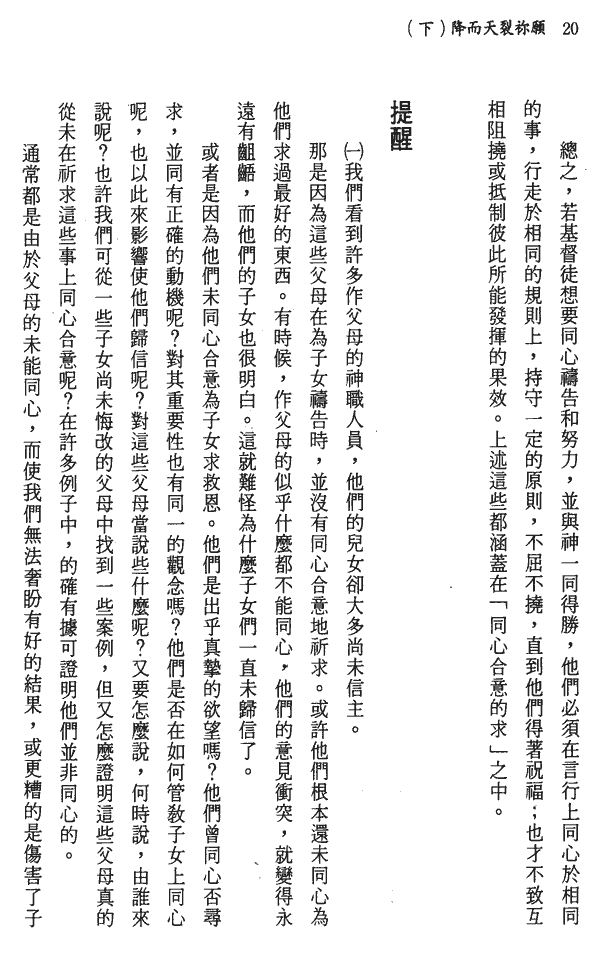 20　願祢裂天而降（下）
總之，若基督徒想要同心禱告和努力，並與神一同得勝，他們必須在言行上同心於相同
的事，行走於相同的規則上，持守一定的原則，不屈不撓，直到他們得著祝福；也才不致互
相阻撓或抵制彼此所能發揮的果效。上述這些都涵蓋在「同心合意的求」之中。
提醒
㈠我們看到許多作父母的神職人員，他們的兒女卻大多尚未信主。
那是因為這些父母在為子女禱告時，並沒有同心合意地祈求。或許他們根本還未同心為
他們求過最好的東西。有時候，作父母的似乎什麼都不能同心，他們的意見衝突，就變得永
遠有齟齬，而他們的子女也很明白。這就難怪為什麼子女們一直未歸信了。
或者是因為他們未同心合意為子女求救恩。他們是出乎真摯的欲望嗎？他們曾同心否尋
求，並同有正確的動機呢？對其重要性也有同一的觀念嗎？他們是否在如何管教子女上同心
呢，也以此來影響使他們歸信呢？對這些父母當說些什麼呢？又要怎麼說，何時說，由誰來
說呢？也許我們可從一些子女尚未悔改的父母中找到一些案例，但又怎麼證明這些父母真的
從未在祈求這些事上同心合意呢？在許多例子中，的確有據可證明他們並非同心的。
通常都是由於父母的未能同心，而使我們無法奢盼有好的結果，或更糟的是傷害了子